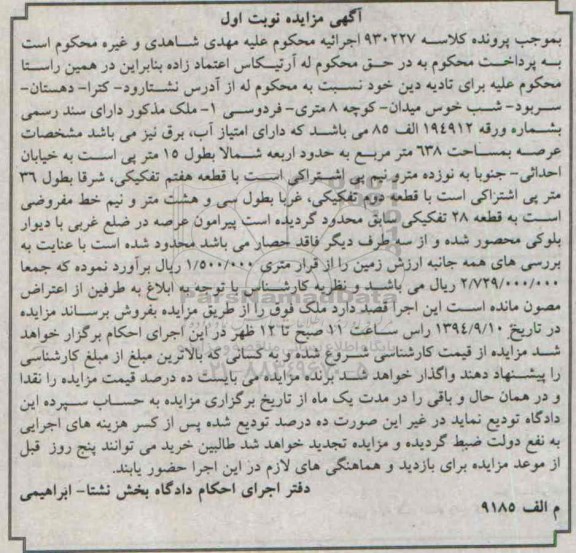 آگهی مزایده نوبت اول
بموجب پرونده کلاسه ۹۳۰۲۲۷ اجرائیه محکوم علیه مهدی شاهدی و غیره محکوم است
به پرداخت محکوم به در حق محکوم له آرتیکاس اعتماد زاده بنابراین در همین راستا
محکوم علیه برای تادیه دین خود نسبت به محکوم له از آدرس نشتارود- کترا- دهستان-
سربود- شب خوس میدان- کوچه ۸ متری- فردوسی ۱- ملک مذکور دارای سند رسمی
بشماره ورقه ۱۹۴۹۱۲ الف ۸۵ می باشد که دارای امتیاز آب، برق نیز می باشد مشخصات
عرصه بمساحت ۶۳۸ متر مربع به حدود اربعه شمالا بطول ۱۵ متر پی است به خیابان
احداثی- جنوبا به نوزده مترو نیم پی اشتراکی است با قطعه هفتم تفکیکی، شرقا بطول ۳۶
متر پی اشتراکی است با قطعه دوم تفکیکی، غربا بطول سی و هشت متر و نیم خط مفروضی
است به قطعه ۲۸ تفکیکی سابق محدود گردیده است پیرامون عرصه در ضلع غربی با دیوار
بلوکی محصور شده و از سه طرف دیگر فاقد حصار می باشد محدود شده است با عنایت به
بررسی های همه جانبه ارزش زمین را از قرار متری ۱/۵۰۰/۰۰۰ ریال برآورد نموده که جمعا
۲/۷۲۹/۰۰۰/۰۰۰ ریال می باشد و نظریه کارشناس با توجه به ابلاغ به طرفین از اعتراض
مصون مانده است این اجرا قصد دارد ملک فوق را از طریق مزایده بفروش برساند مزایده
در تاریخ ۱۳۹۴/۹/۱۰ راس ساعت ۱۱ صبح تا ۱۲ ظهر در این اجرای احکام برگزار خواهد
شد مزایده از قیمت کارشناسی شروع شده و به کسانی که بالاترین مبلغ از مبلغ کارشناسی
را پیشنهاد دهند واگذار خواهد شد برنده مزایده می بایست ده درصد قیمت مزایده را نقدا
و در همان حال و باقی را در مدت یک ماه از تاریخ برگزاری مزایده به حساب سپرده این
دادگاه تودیع نماید در غیر این صورت ده درصد تودیع شده پس از کسر هزینه های اجرایی
به نفع دولت ضبط گردیده و مزایده تجدید خواهد شد طالبین خرید می توانند پنج روز قبل
از موعد مزایده برای بازدید و هماهنگی های لازم در این اجرا حضور یابند.
دفتر اجرای احکام دادگاه بخش نشتا- ابراهیمی
م الف ۹۱۸۵
ParsNamadData